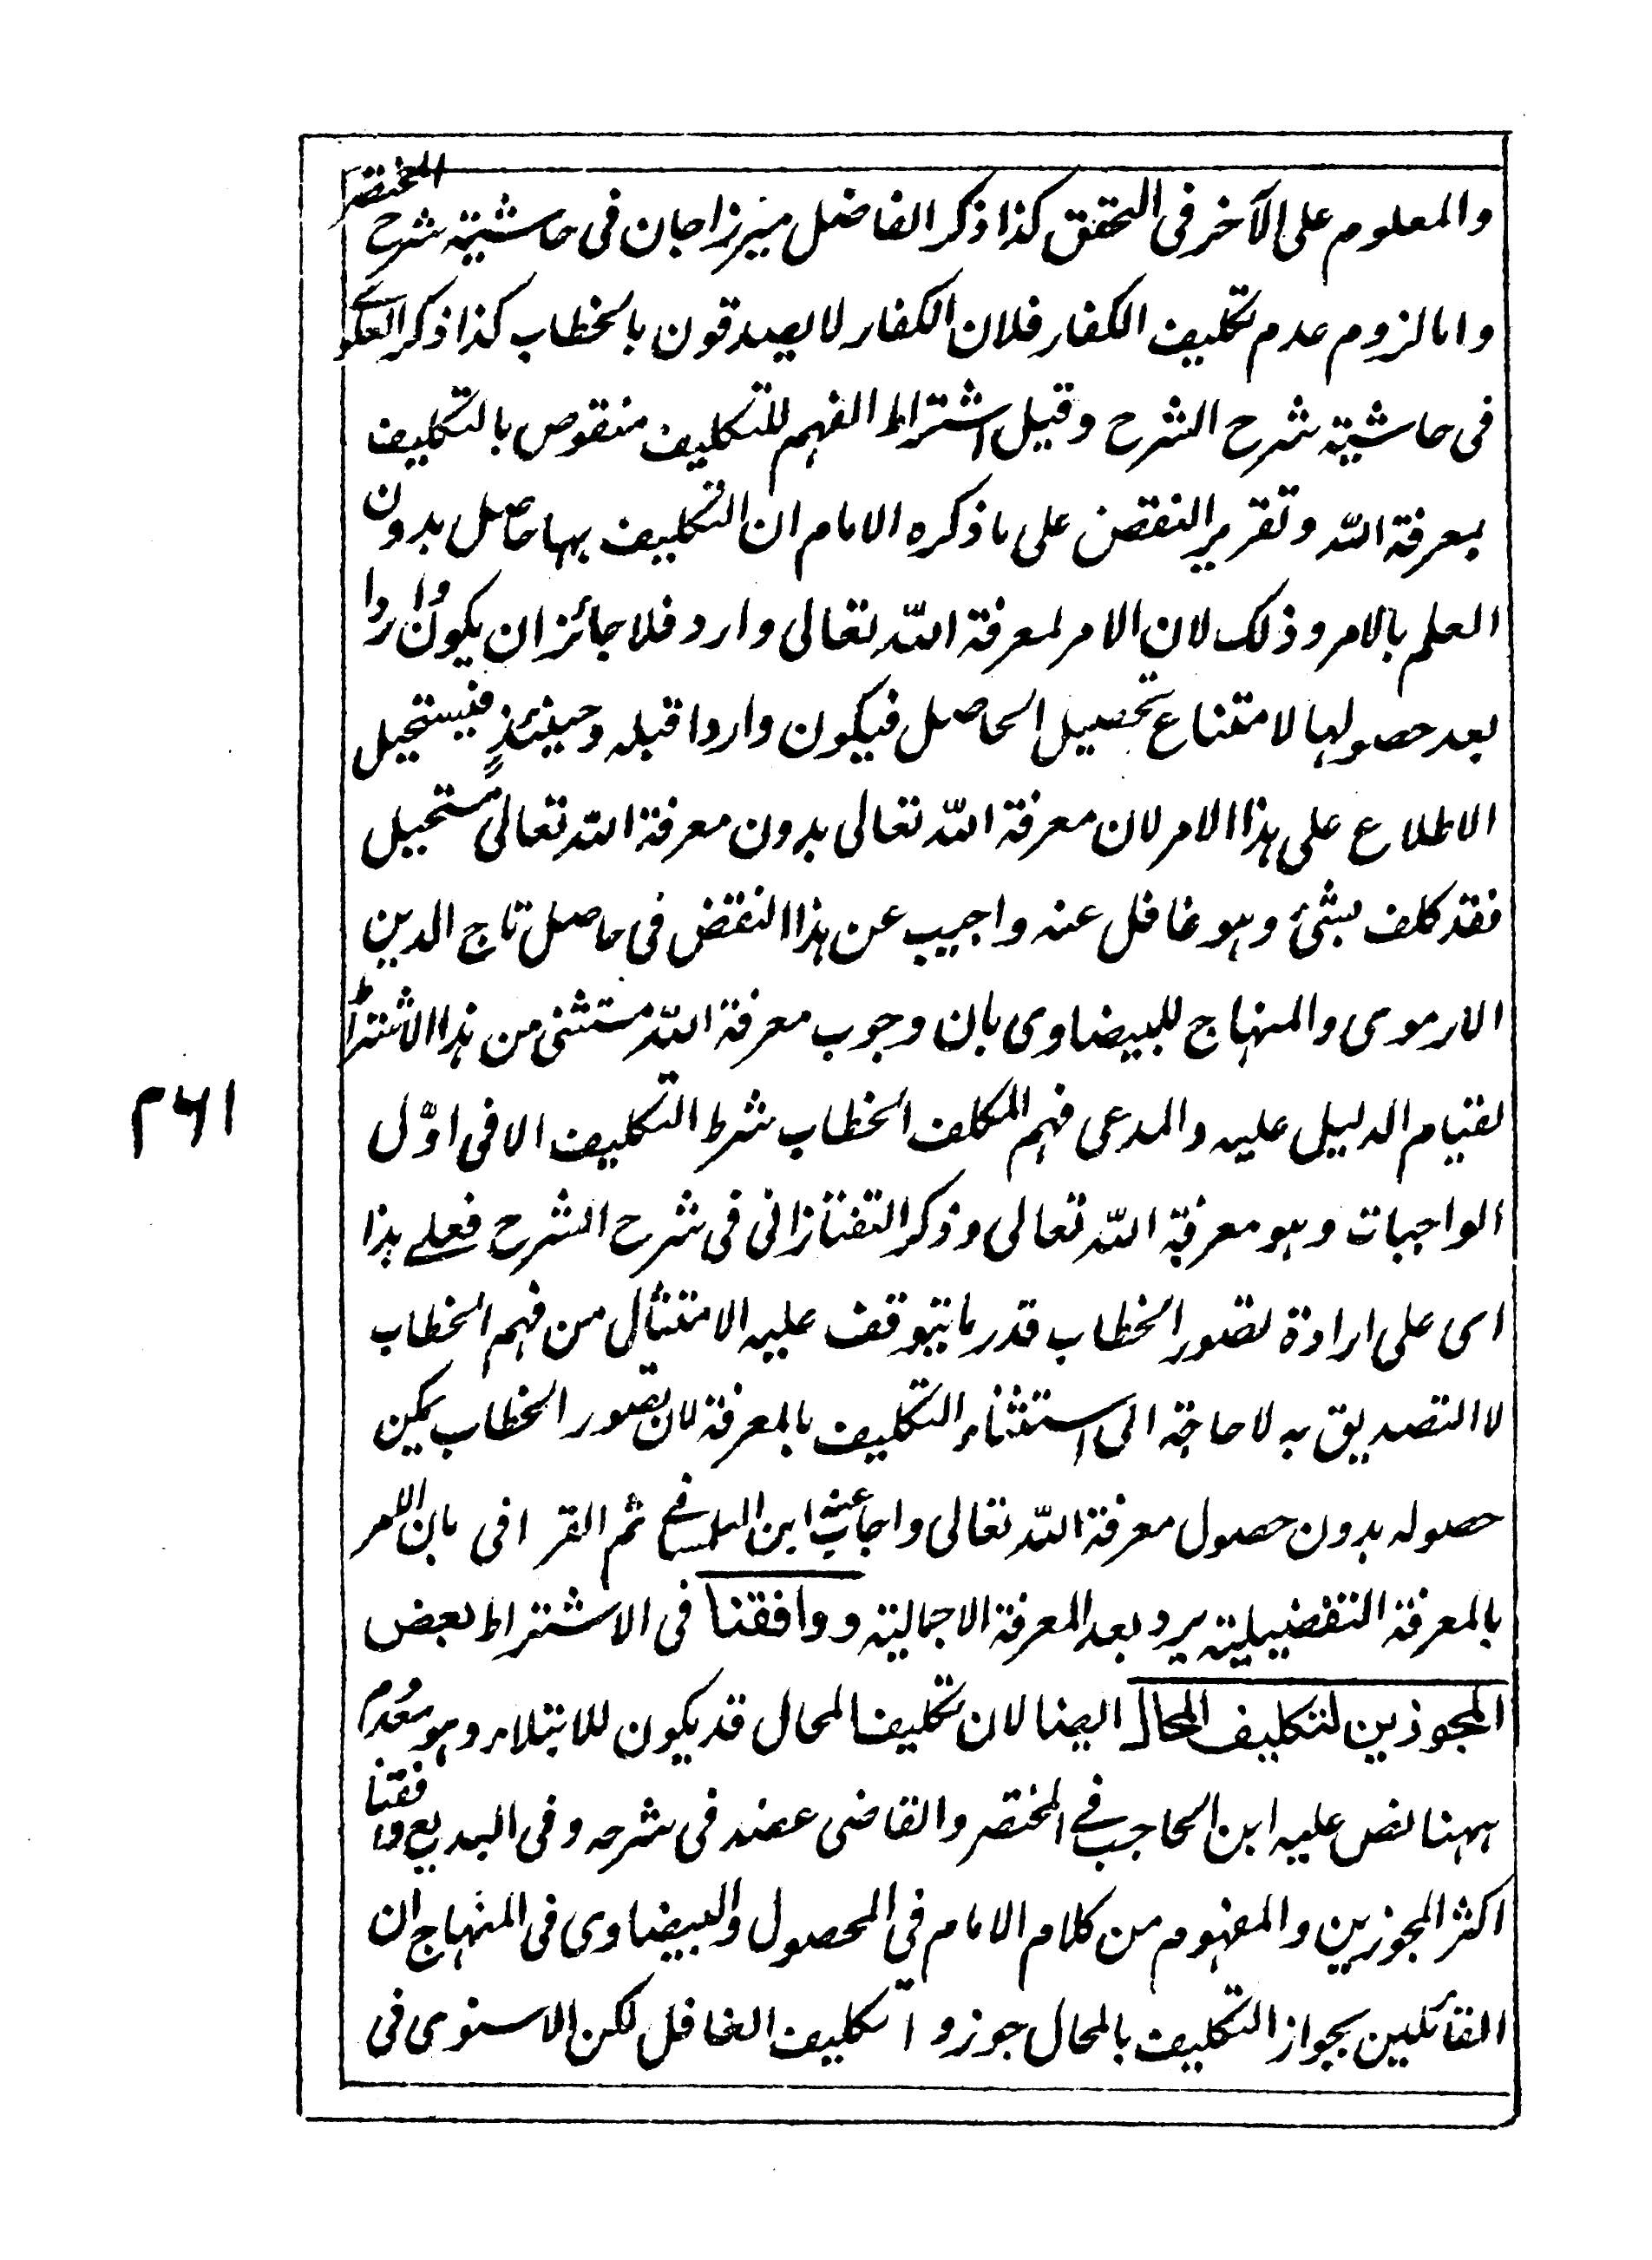 والمعلوم على الآخر فى التحقق كذا ذكر الفاضل ميرزاجان فى حاشية شرح المختصر
واما لزوم عدم تكليف الكفار فلان الكفار لا يصدقون بالخطاب كذا ذكر
فى حاشية شرح الشرح وقيل اشتراط الفهم للتكليف منقوص بالتكليف
بمعرفة الله وتقرير النقض على ما ذكره الامام ان التكليف بها حاصل بدون
العلم بالامر وذلك لان الامر لمعرفة الله تعالى وارد فلا جائز ان يكون واردا
بعد حصولها لامتناع تحصيل الحاصل فيكون واردا قبله وحينئذ فيستحيل
الاطلاع على هذا الامر لان معرفة الله تعالى بدون معرفة الله تعالى مستحيل
فقد كلف بشئ وهو غافل عنه واجيب عن هذا النقض فى حاصل تاج الدين
الارموى والمنهاج للبيضاوى بان وجوب معرفة الله مستثنى من هذا الاشتراط
لقيام الدليل عليه والمدعى فهم المكلف الخطاب شرط التكليف الا فى اوّل
الواجبات وهو معرفة الله تعالى وذكر التفتازانى فى شرح الشرح فعلى هذا
اى على ارادة تصور الخطاب قدر ما يتوقف عليه الامتثال من فهم الخطاب
لا التصديق به لا حاجة الى استثناء التكليف بالمعرفة لان تصور الخطاب يمكن
حصوله بدون حصول معرفة الله تعالى واجاب عنه ابن التلمسانى ثم القرافى بان الامر
بالمعرفة التفضيلية يرد بعد المعرفة الاجمالية ووافقنا فى الاشتراط بعض
المجوزين لتكليف المحال ايضا لان تكليف المحال قد يكون للابتلاء وهو معدوم
ههنا نص عليه ابن الحاجب فى المختصر والقاضى عضد فى شرحه وفى البديع وافقنا
اكثر المجوزين والمفهوم من كلام الامام فى المحصول والبيضاوى فى المنهاج ان
القائلين بجواز التكليف بالمحال جوزوا تكليف الغافل لكن الاسنوى فى
۲۶۱